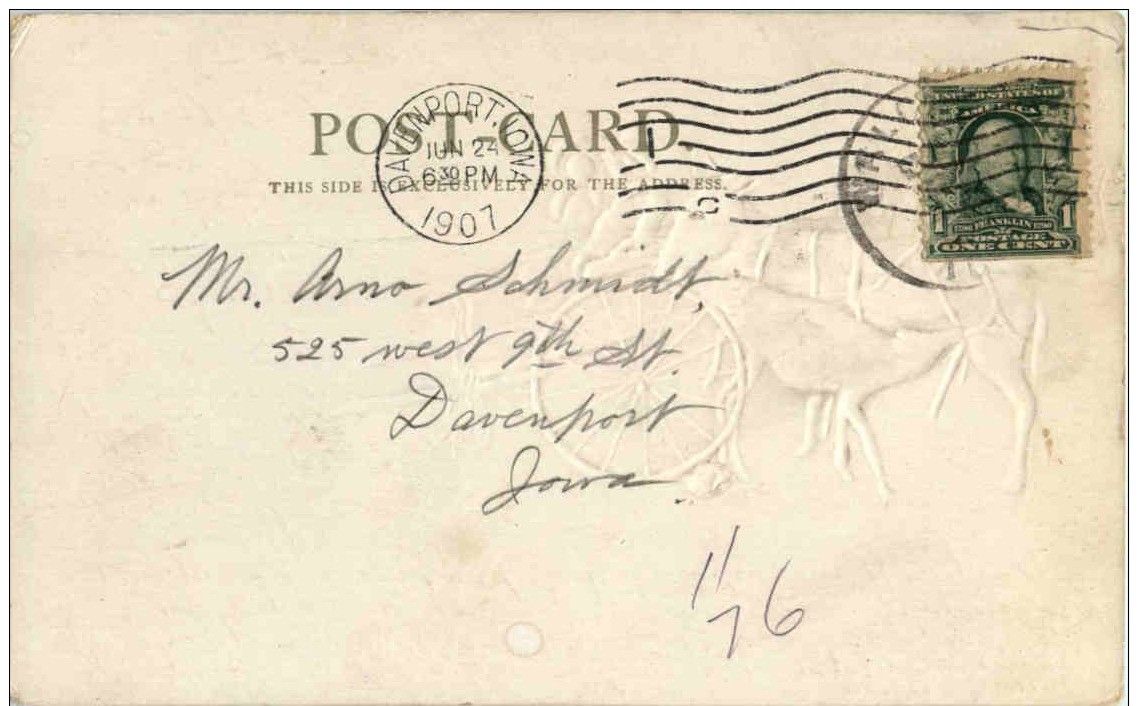 POST-CARD
THIS SIDE IS EXCLUSIVELY FOR THE ADDRESS.
DAVENPORT, IOWA
JUN 24
6 30 PM
1907
FRANKLIN
1 1
ONE CENT
Mr. Arno Schmidt,
525 west 9th St.
Davenport
Iowa.
11
76